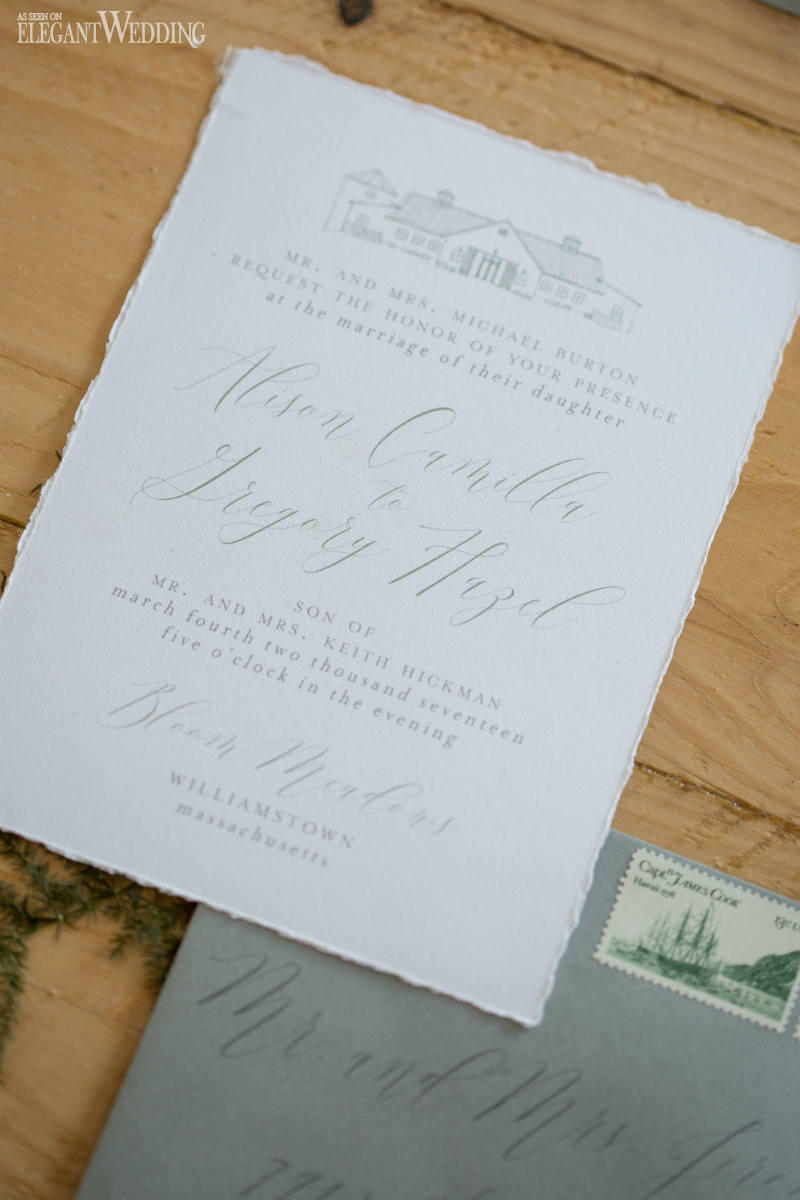 AS SEEN ON
ELEGANTWEDDING
MR. AND MRS. MICHAEL BURTON
REQUEST THE HONOR OF YOUR PRESENCE
at the marriage of their daughter
Alison Camilla
to
Gregory Hazel
SON OF
MR. AND MRS. KEITH HICKMAN
march fourth two thousand seventeen
five o'clock in the evening
Bloom Meadows
WILLIAMSTOWN
massachusetts
Capt. JAMES COOK
Hawaii 1778
13c US
Mr. and Mrs.